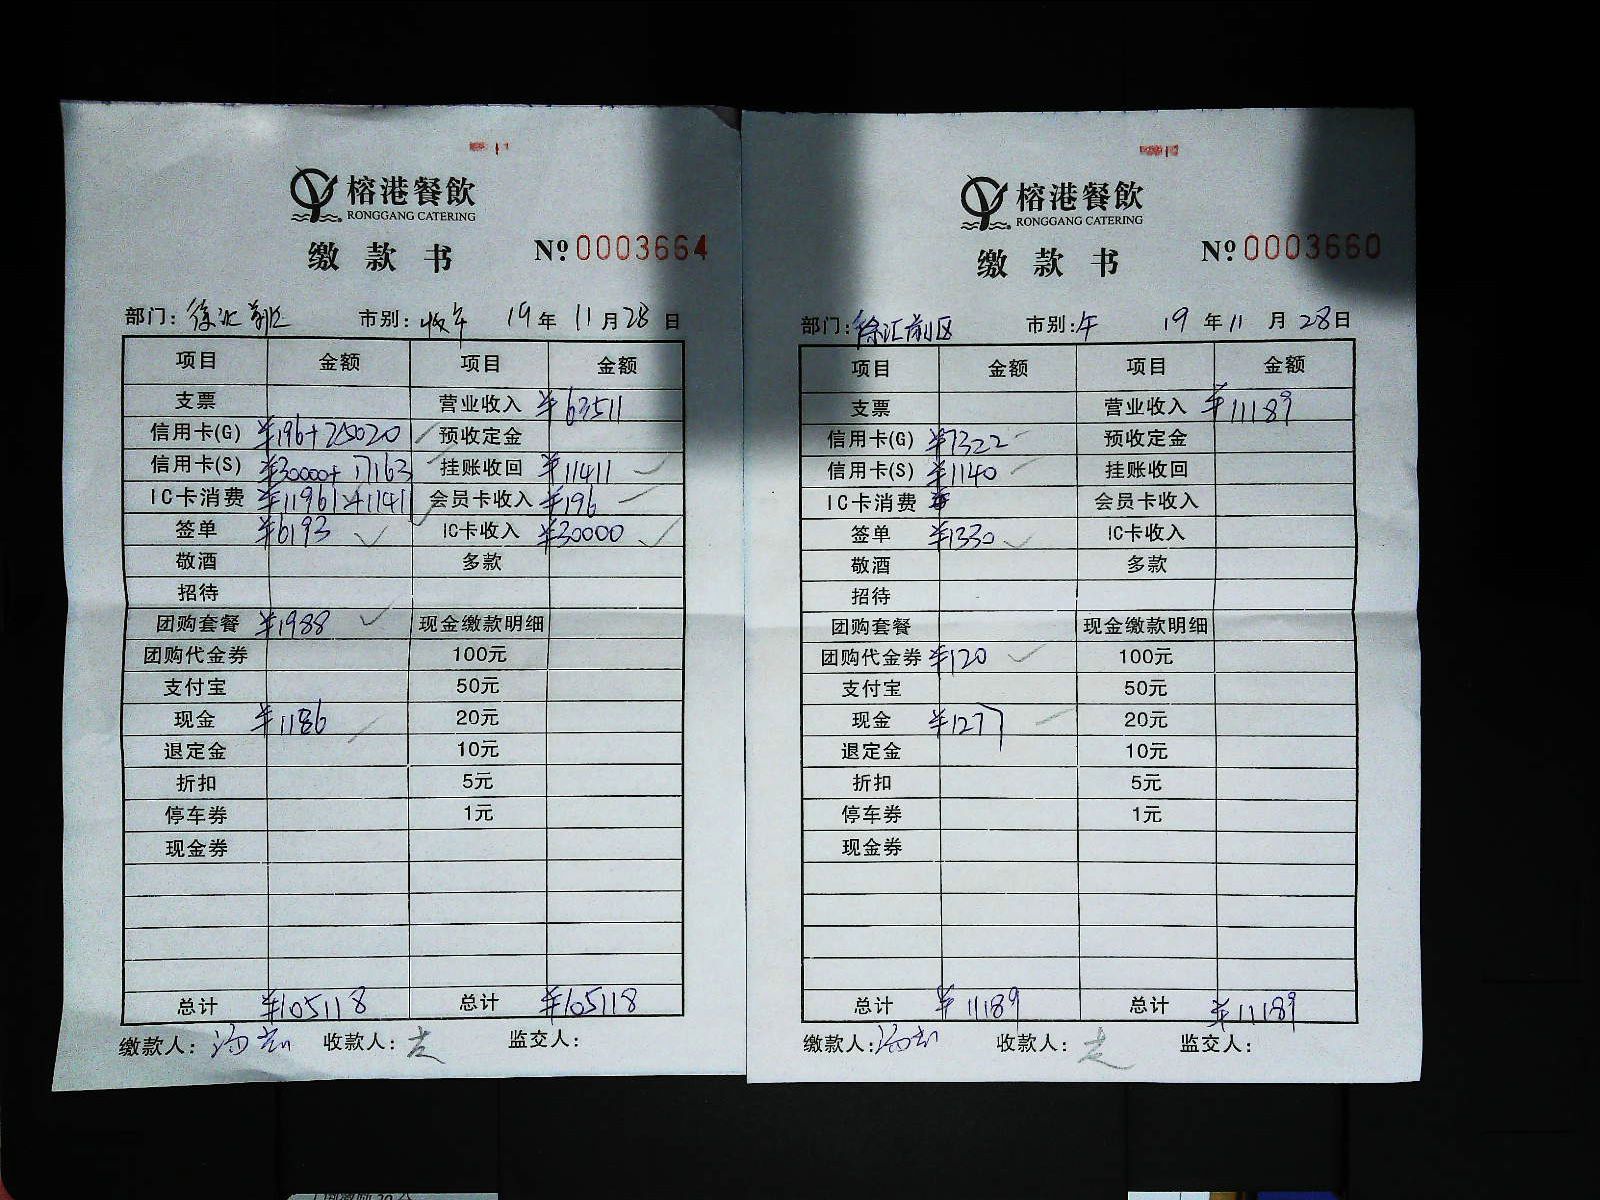 榕港餐飲
RONGGANG CATERING
缴款书 Nº 0003664
部门: 徐汇前区 市别: 19年 11月28日
项目 金额 项目 金额
支票 营业收入 ¥63511
信用卡(G) ¥196+25020 预收定金
信用卡(S) ¥30000+17163 挂账收回 ¥11411
IC卡消费 ¥11961+11411 会员卡收入 ¥196
签单 ¥6193 IC卡收入 ¥30000
敬酒 多款
招待
团购套餐 ¥1988 现金缴款明细
团购代金券 100元
支付宝 50元
现金 ¥1186 20元
退定金 10元
折扣 5元
停车券 1元
现金券
总计 ¥105118 总计 ¥105118
缴款人: 收款人: 监交人:
榕港餐飲
RONGGANG CATERING
缴款书 Nº 0003660
部门: 徐汇前区 市别: 午 19年11月28日
项目 金额 项目 金额
支票 营业收入 ¥11189
信用卡(G) ¥7322 预收定金
信用卡(S) ¥1140 挂账收回
IC卡消费 ¥ 会员卡收入
签单 ¥1330 IC卡收入
敬酒 多款
招待
团购套餐 现金缴款明细
团购代金券 ¥120 100元
支付宝 50元
现金 ¥1277 20元
退定金 10元
折扣 5元
停车券 1元
现金券
总计 ¥11189 总计 ¥11189
缴款人: 收款人: 监交人: